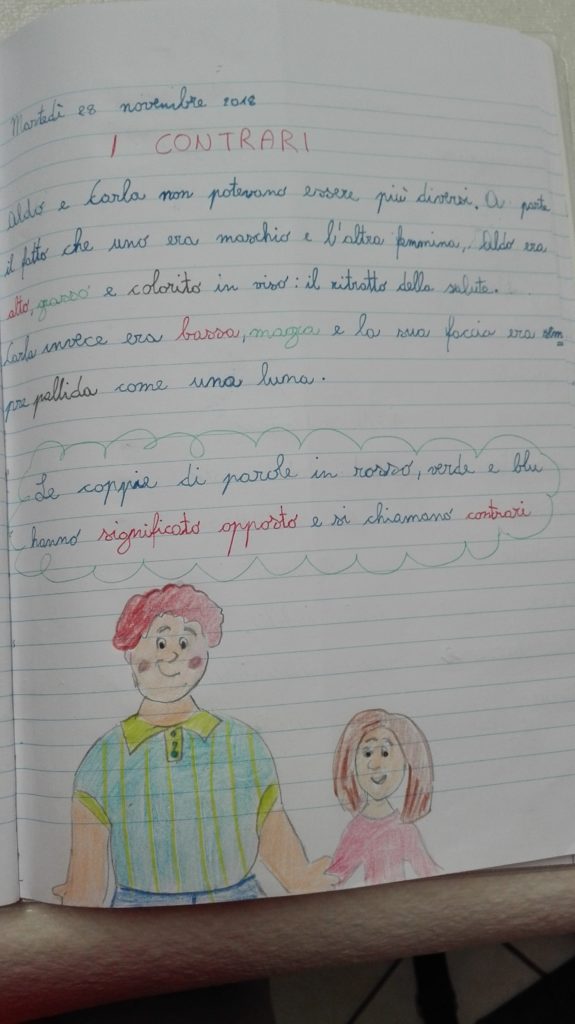 Martedì 28 novembre 2018
I CONTRARI
Aldo e Carla non potevano essere più diversi. A parte
il fatto che uno era maschio e l'altra femmina, Aldo era
alto, grasso e colorito in viso: il ritratto della salute.
Carla invece era bassa, magra e la sua faccia era sem
pre pallida come una luna.
Le coppie di parole in rosso, verde e blu
hanno significato opposto e si chiamano contrari